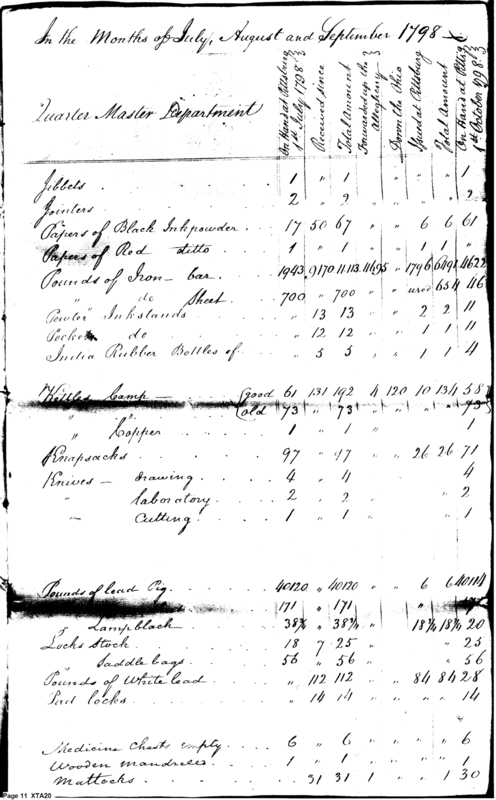 In the Months of July, August and September 1798
Quarter Master Department
On Hand at Pittsburg 1st July 1798
Received since
Total Amount
Forwarded up the Allegheny
Down the Ohio
Used at Pittsburg
Total Amount
On Hand at Pittsg 1st October 1798
Jibbets 1 " 1 " " 1
Jointers 2 " 2 " " 2
Papers of Black Inkpowder 17 50 67 " " 6 6 61
Papers of Red ditto 1 " 1 " " 1 1 "
Pounds of Iron — bar 1943 9170 11113 " 1796 6491 4622
" do Sheet 700 " 700 " used 654 46
Pewter Inkstands " 13 13 " " 2 2 11
Pocket do " 12 12 " " 1 1 11
India Rubber Bottles of " 5 5 " " 1 1 4
Kettles Camp — good 61 131 192 4 120 10 134 58
" " old 73 " 73 " " 73
" Copper 1 " 1 " 1
Knapsacks 97 " 97 " " 26 26 71
Knives — drawing 4 " 4 " 4
" laboratory 2 " 2 " " 2
" Cutting 1 " 1 " " 1
Pounds of lead Pig 40120 " 40120 " " 6 6 40114
171 " 171 " "
" Lampblack 38¾ " 38¾ " 18¾ 18¾ 20
Locks Stock 18 7 25 " 25
" Saddle bags 56 " 56 " " 56
Pounds of White lead " 112 112 " " 84 84 28
Pad locks " 14 14 " " " " 14
Medicine Chest empty 6 " 6 " " " 6
Wooden Mandrells 1 " 1 " " " 1
Mattocks " 31 31 1 " " 1 30
Page 11 XTA20